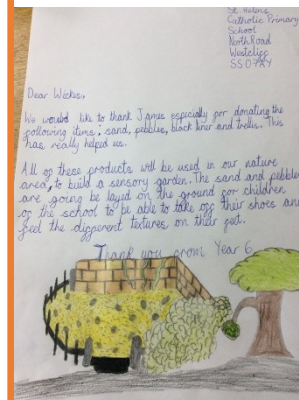 St. Helens
Catholic Primary
School
North Road
Westcliff
SS0 7AY
Dear Wickes,
We would like to thank James especially for donating the
following items: sand, pebbles, black liner and trellis. This
has really helped us.
All of these products will be used in our nature
area, to build a sensory garden. The sand and pebbles
are going be layed on the ground for children
of the school to be able to take off their shoes and
feel the different textures on their feet.
Thank you from Year 6